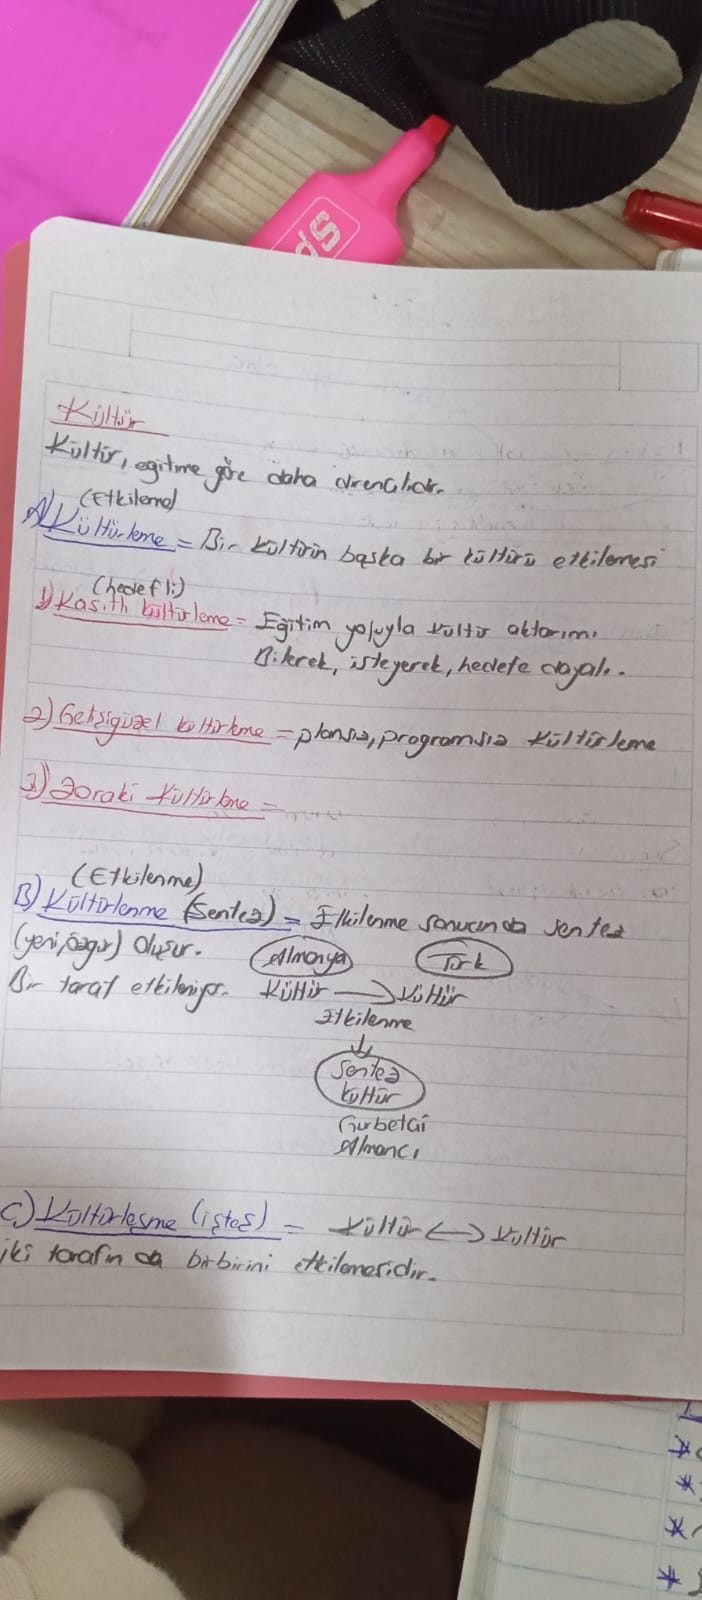 Kültür
Kültür, eğitime göre daha dirençlidir.
(Etkileme)
A) Kültürleme = Bir kültürün başka bir kültürü etkilemesi
(hedefli)
1) Kasıtlı kültürleme = Eğitim yoluyla kültür aktarımı
Bilerek, isteyerek, hedefe dayalı.
2) Gelişigüzel kültürleme = plansız, programsız kültürleme
3) Zoraki kültürleme =
(Etkilenme)
B) Kültürlenme (Sentez) = Etkilenme sonucunda sentez
(yeni, özgür) oluşur.
Almanya Türk
Bir taraf etkileniyor. Kültür → Kültür
Etkilenme
↓
Sentez
kültür
Gurbetçi
Almancı
C) Kültürleşme (işteş) = Kültür ↔ Kültür
iki tarafın da birbirini etkilemesidir.